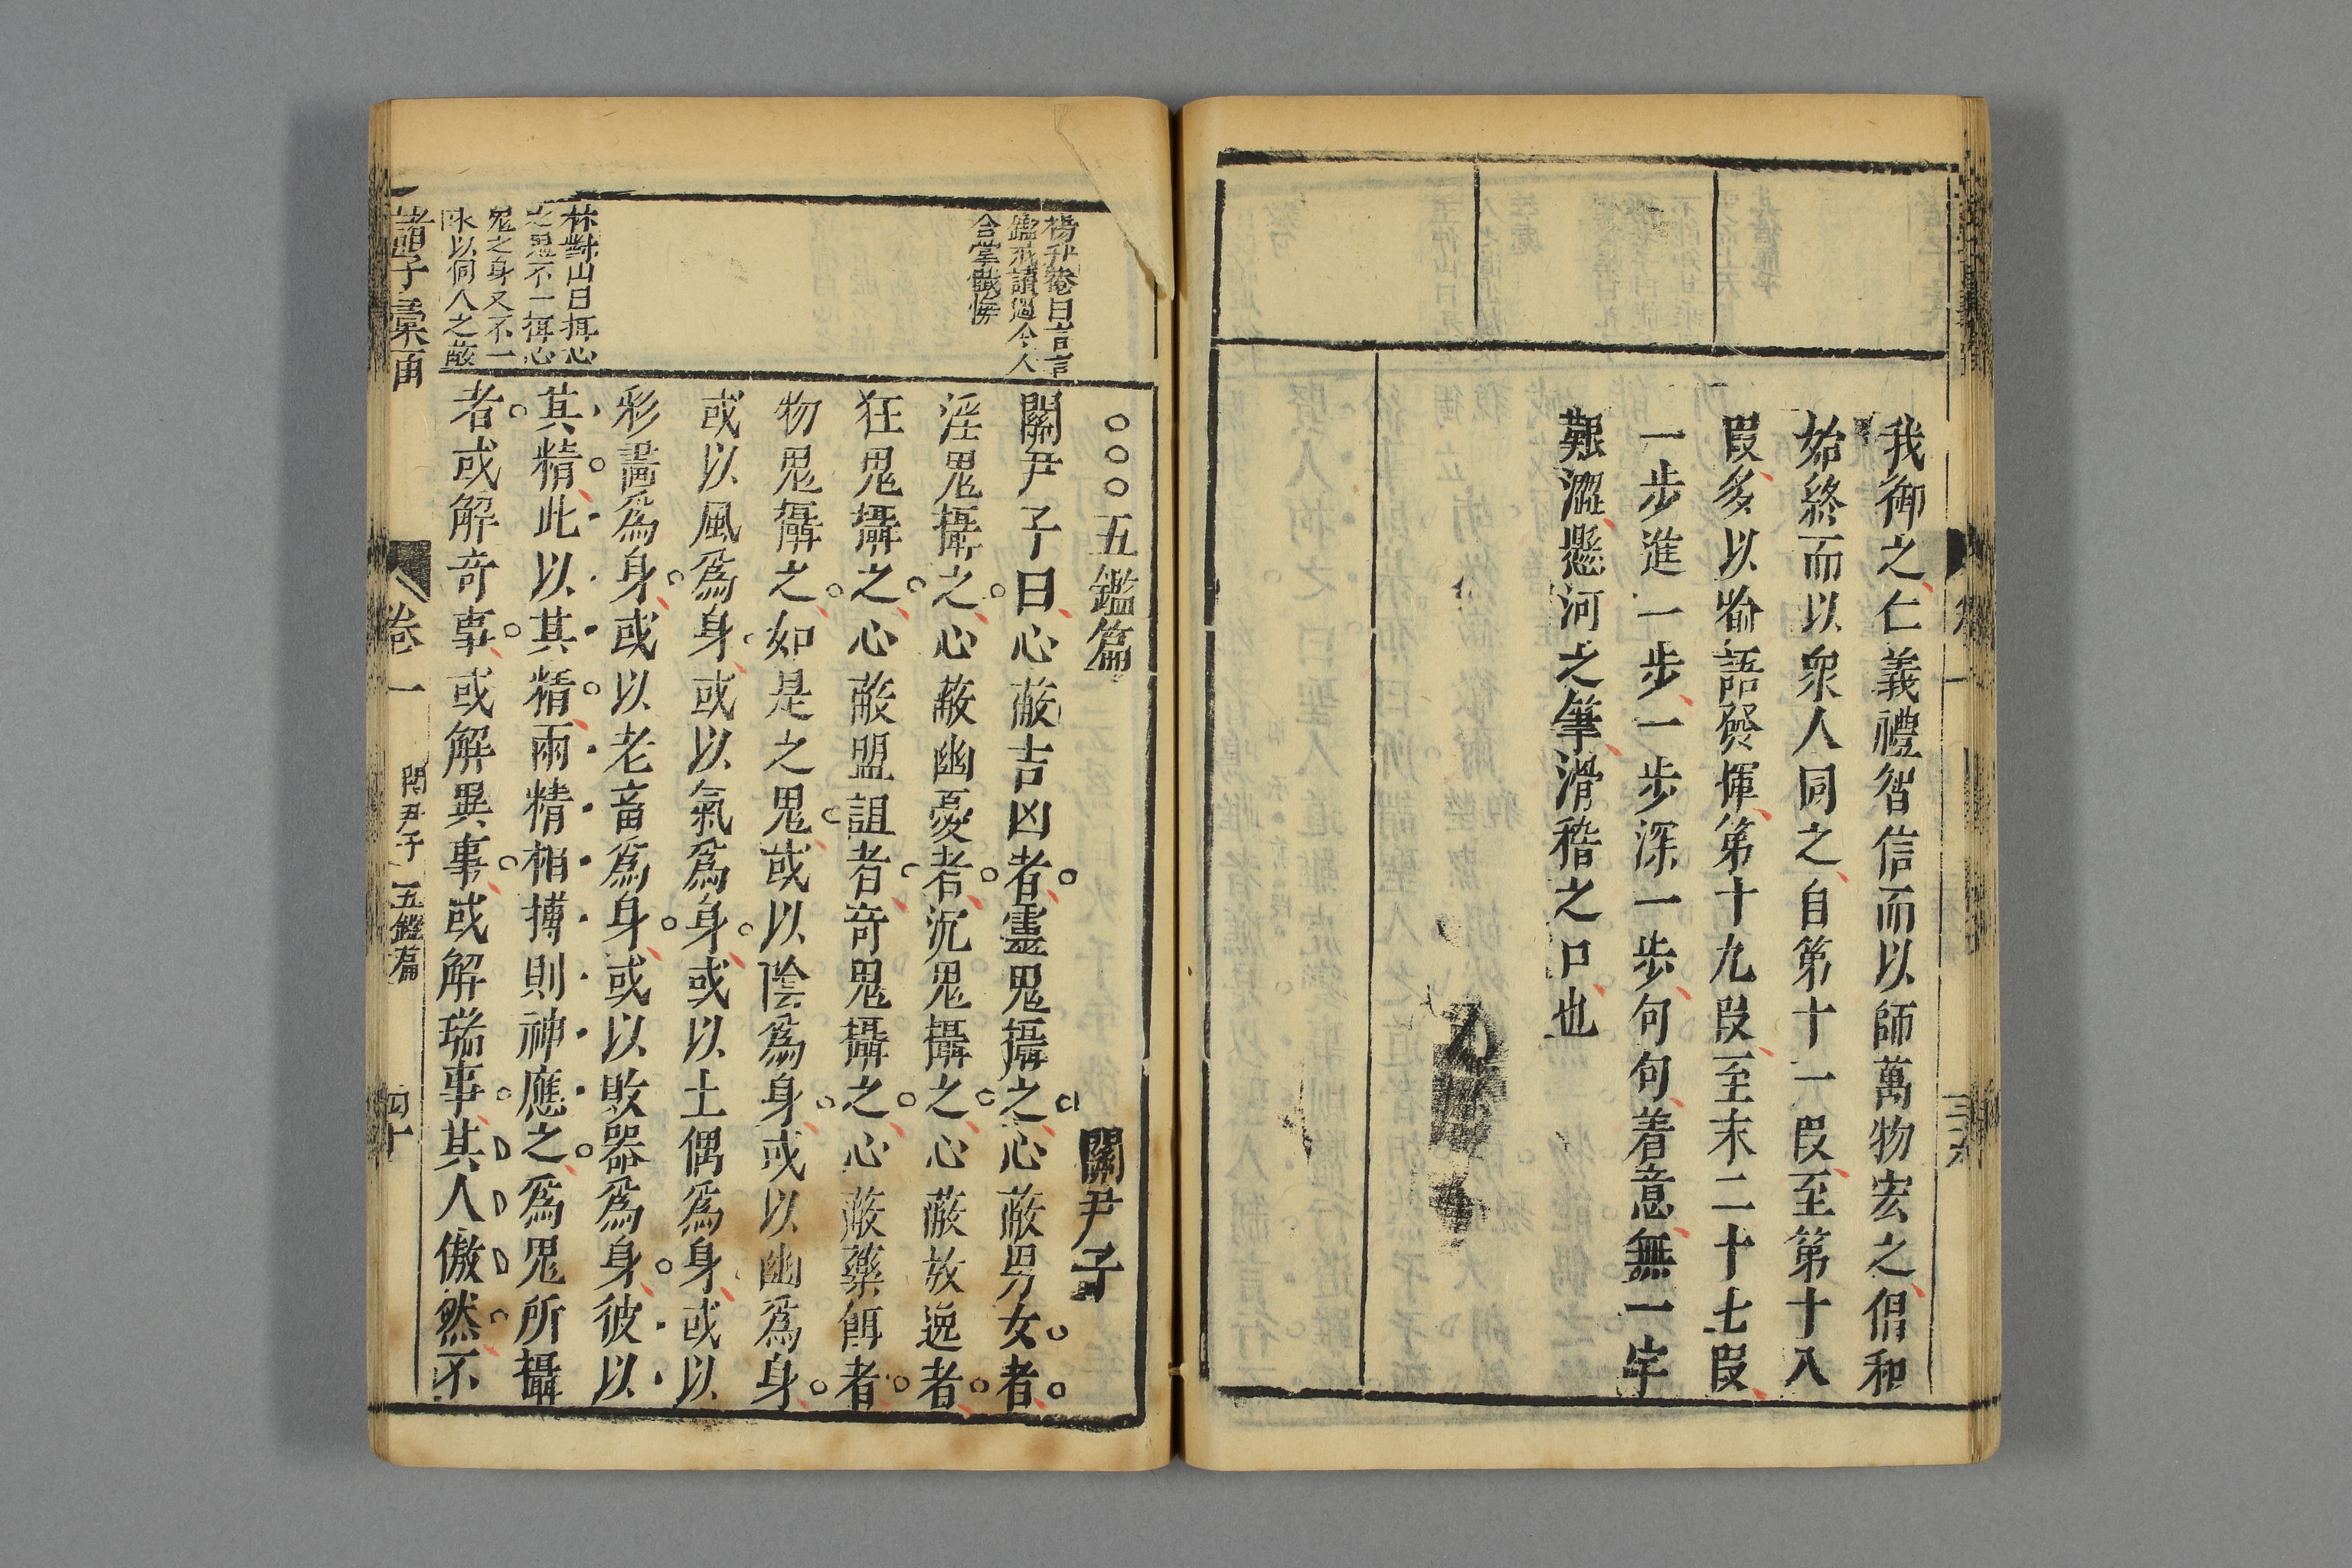 我御之仁義禮智信而以師萬物宏之倡和
始終而以衆人同之自第十一段至第十八
段多以喻語發揮第十九段至末二十七段
一步進一步一步深一步句句着意無一字
艱澀懸河之筆滑稽之口也
楊升菴曰言言
鑑戒讀過令人
合掌懺悔
林對山曰揖心
之鬼不一揖心
鬼之身又不一
以伺人之蔽
○○○五鑑篇
關尹子
關尹子曰心蔽吉凶者靈鬼攝之心蔽男女者
淫鬼攝之心蔽幽憂者沉鬼攝之心蔽放逸者
狂鬼攝之心蔽盟詛者奇鬼攝之心蔽藥餌者
物鬼攝之如是之鬼或以陰爲身或以幽爲身
或以風爲身或以氣爲身或以土偶爲身或以
彩畵爲身或以老畜爲身或以敗器爲身彼以
其精此以其精兩精相搏則神應之爲鬼所攝
者或解奇事或解異事或解瑞事其人傲然不
諸子彙函
卷一
關尹子
五鑑篇
四十